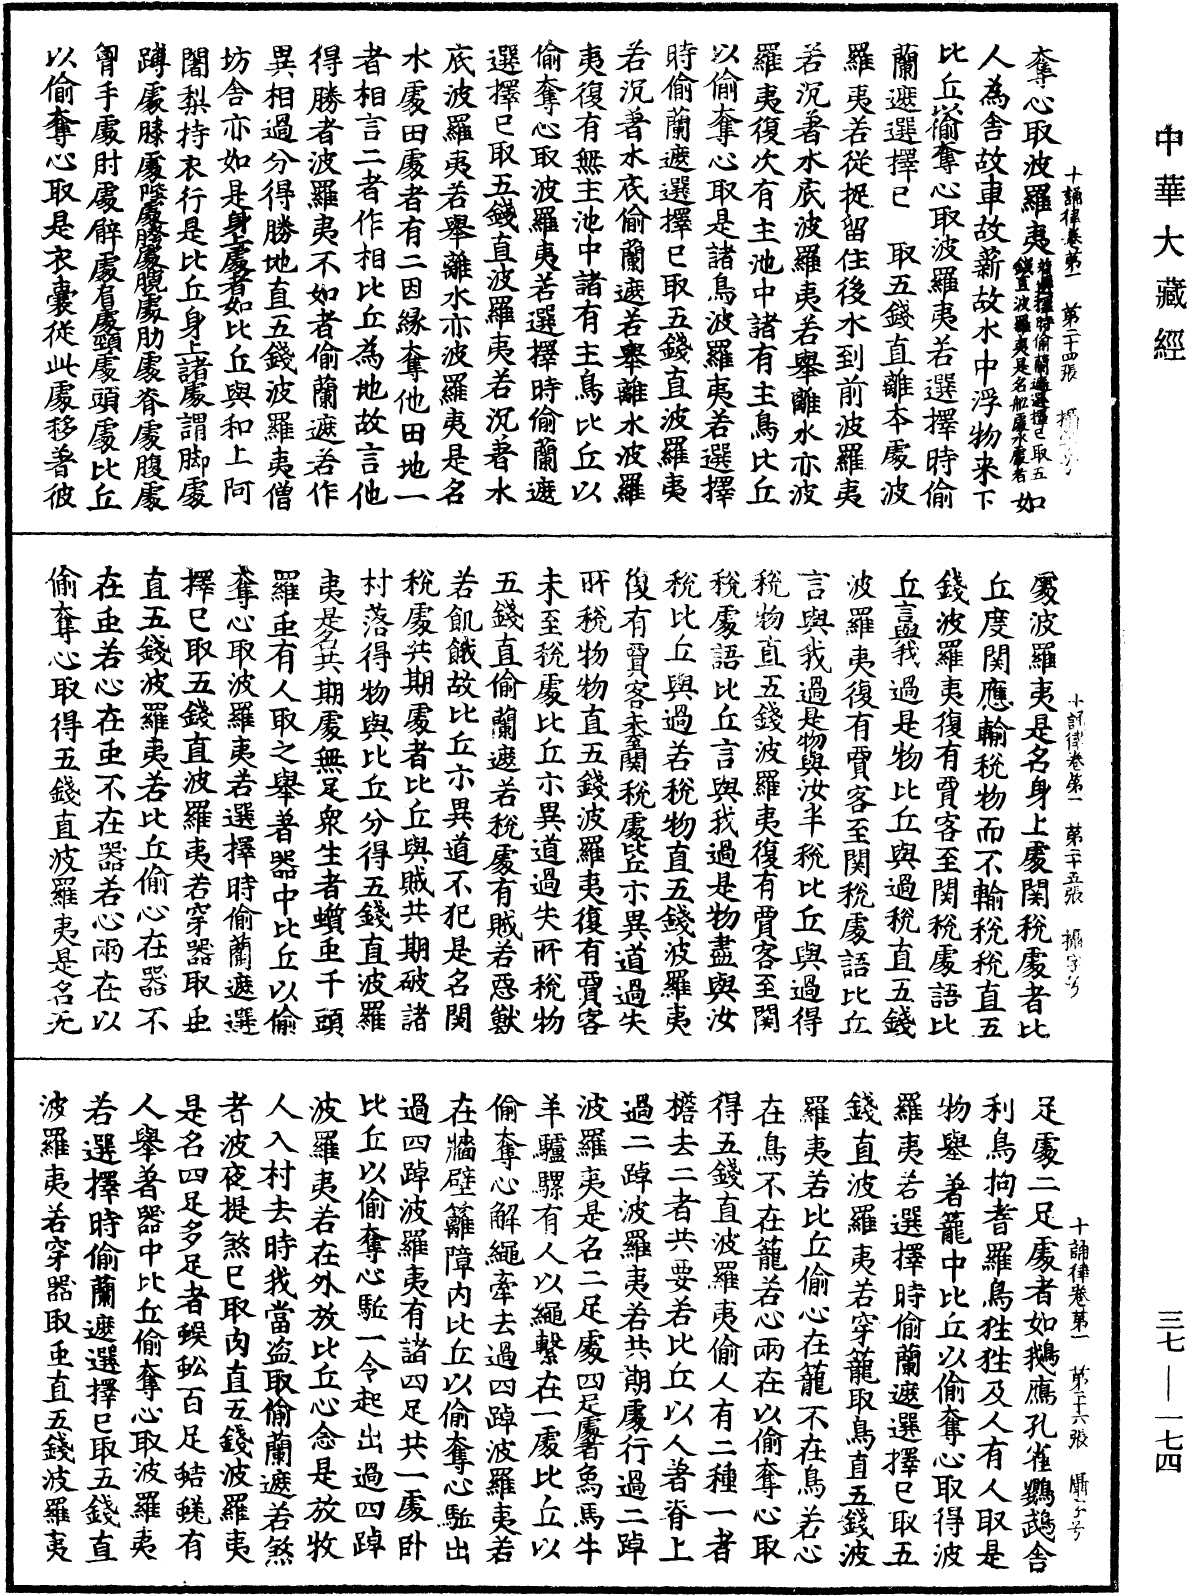 中華大藏經
三七—一七四
十誦律卷第一　第二十四張　攝字号
奪心取波羅夷若選擇時偷蘭遮選擇已取五錢直波羅夷是名船處水處者如
人為舍故車故薪故水中浮物來下
比丘以偷奪心取波羅夷若選擇時偷
蘭遮選擇已　取五錢直離本處波
羅夷若從捉留住後水到前波羅夷
若沉著水底波羅夷若舉離水亦波
羅夷復次有主池中諸有主鳥比丘
以偷奪心取是諸鳥波羅夷若選擇
時偷蘭遮選擇已取五錢直波羅夷
若沉著水底偷蘭遮若舉離水波羅
夷復有無主池中諸有主鳥比丘以
偷奪心取波羅夷若選擇時偷蘭遮
選擇已取五錢直波羅夷若沉著水
底波羅夷若舉離水亦波羅夷是名
水處田處者有二因緣奪他田地一
者相言二者作相比丘為地故言他
得勝者波羅夷不如者偷蘭遮若作
異相過分得勝地直五錢波羅夷僧
坊舍亦如是身上處者如比丘與和上阿
闍梨持衣行是比丘身上諸處謂脚處
𨄔處膝處䏶處胯處腕處肋處脊處腹處
胷手處肘處臂處肩處頸處頭處比丘
以偷奪心取是衣囊從此處移著彼
處波羅夷是名身上處関稅處者比
丘度関應輸稅物而不輸稅稅直五
錢波羅夷復有賈客至関稅處語比
丘言與我過是物比丘與過稅直五錢
波羅夷復有賈客至関稅處語比丘
言與我過是物與汝半稅比丘與過得
稅物直五錢波羅夷復有賈客至関
稅處語比丘言與我過是物盡與汝
稅比丘與過若稅物直五錢波羅夷
復有賈客未至関稅處比丘示異道過失
所稅物物直五錢波羅夷復有賈客
未至稅處比丘示異道過失所稅物
五錢直偷蘭遮若稅處有賊若惡獸
若飢餓故比丘示異道不犯是名関
稅處共期處者比丘與賊共期破諸
村落得物與比丘分得五錢直波羅
夷是名共期處無足衆生者蛭虫千頭
羅虫有人取之舉著器中比丘以偷
奪心取波羅夷若選擇時偷蘭遮選
擇已取五錢直波羅夷若穿器取虫
直五錢波羅夷若比丘偷心在器不
在虫若心在虫不在器若心兩在以
偷奪心取得五錢直波羅夷是名无
十誦律卷第一　第二十五張　攝字号
足處二足處者如鵝鴈孔雀鸚鵡舍
利鳥拘耆羅鳥狌狌及人有人取是
物舉著籠中比丘以偷奪心取得波
羅夷若選擇時偷蘭遮選擇已取五
錢直波羅夷若穿籠取鳥直五錢波
羅夷若比丘偷心在籠不在鳥若心
在鳥不在籠若心兩在以偷奪心取
得五錢直波羅夷偷人有二種一者
擔去二者共要若比丘以人著脊上
過二踔波羅夷若共期處行過二踔
波羅夷是名二足處四足處者象馬牛
羊驢騾有人以繩繫在一處比丘以
偷奪心解繩牽去過四踔波羅夷若
在牆壁籬障內比丘以偷奪心駈出
過四踔波羅夷有諸四足共一處卧
比丘以偷奪心駈一令起出過四踔
波羅夷若在外放比丘心念是放牧
人入村去時我當盜取偷蘭遮若煞
者波夜提煞已取肉直五錢波羅夷
是名四足多足者蜈蚣百足蛣蜣有
人舉著器中比丘偷奪心取波羅夷
若選擇時偷蘭遮選擇已取五錢直
波羅夷若穿器取虫直五錢波羅夷
十誦律卷第一　第二十六張　攝字号